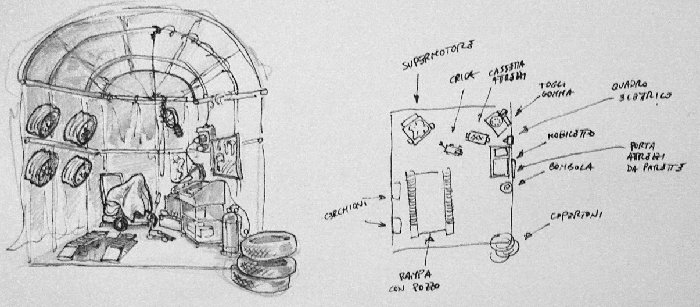 SUPERMOTORE
CRICK
CASSETTA
ATTREZZI
TOGLI
GOMMA
QUADRO
ELETTRICO
MOBILETTO
PORTA
ATTREZZI
DA PARETE
BOMBOLA
CERCHIONI
COPERTONI
RAMPA
CON POZZO